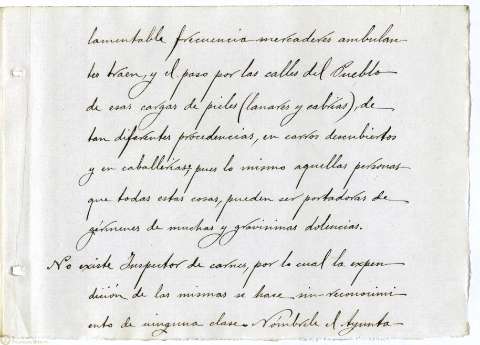 lamentable frecuencia mercaderes ambulan-
tes traen, y el paso por las calles del Pueblo
de esas cargas de pieles (lanares y cabrías), de
tan diferentes procedencias, en carros descubiertos
y en caballerías; pues lo mismo aquellas personas
que todas estas cosas, pueden ser portadoras de
gérmenes de muchas y gravísimas dolencias.
No existe Inspector de carnes, por lo cual la expen-
dición de las mismas se hace sin reconocimi
ento de ninguna clase. Nómbrele el Ayunta